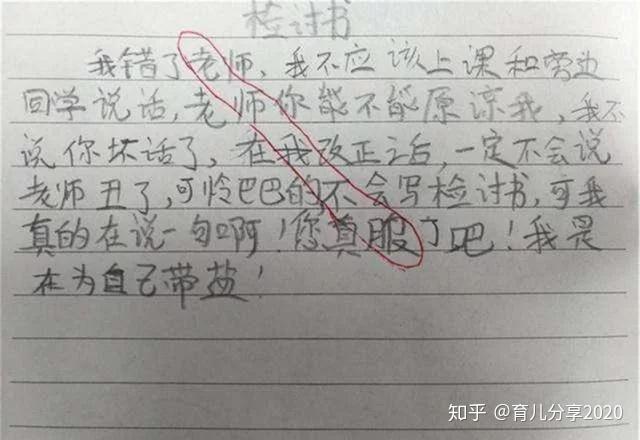 检讨书
我错了老师，我不应该上课和旁边
同学说话，老师你能不能原谅我，我不
说你坏话了，在我改正之后，一定不会说
老师丑了，可怜巴巴的不会写检讨书，可我
真的在说一句啊！您真服了吧！我是
在为自己带盐！
知乎 @育儿分享2020